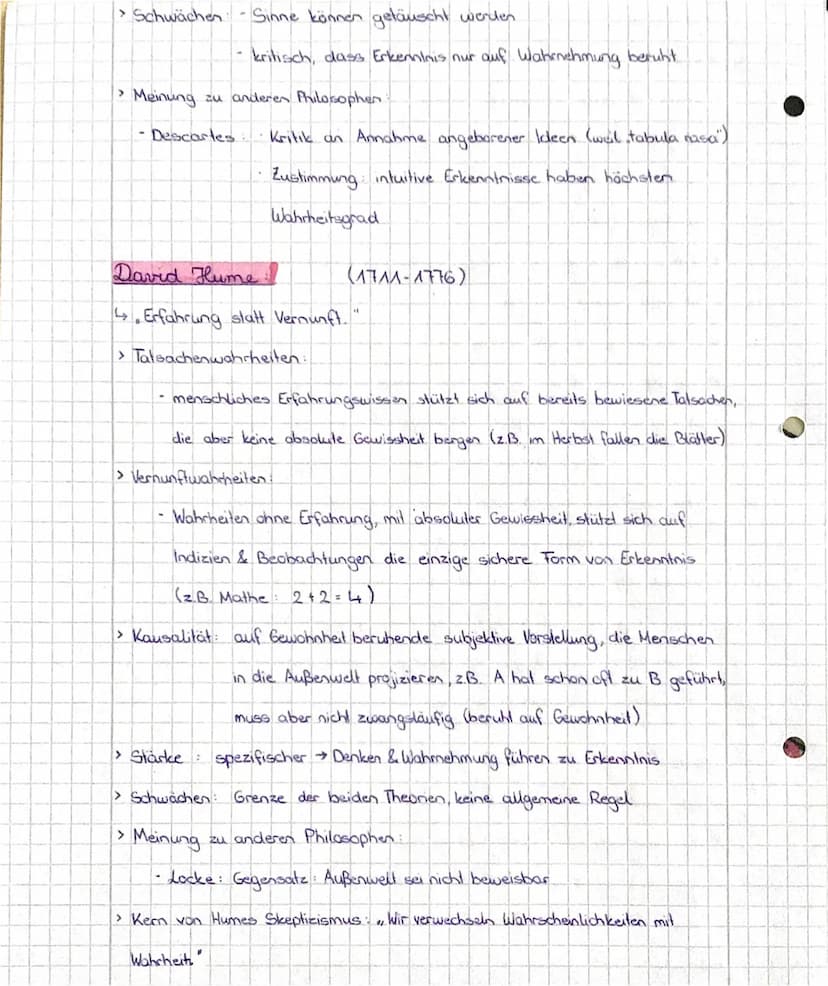 > Schwächen: - Sinne können getäuscht werden
- kritisch, dass Erkenntnis nur auf Wahrnehmung beruht
> Meinung zu anderen Philosophen:
- Descartes: · Kritik an Annahme angeborener Ideen (weil „tabula rasa")
· Zustimmung: intuitive Erkenntnisse haben höchsten
Wahrheitsgrad
David Hume: (1711-1776)
↳ „Erfahrung statt Vernunft."
> Tatsachenwahrheiten:
- menschliches Erfahrungswissen stützt sich auf bereits bewiesene Tatsachen,
die aber keine absolute Gewissheit bergen (z.B. im Herbst fallen die Blätter)
> Vernunftwahrheiten:
- Wahrheiten ohne Erfahrung, mit absoluter Gewissheit, stützt sich auf
Indizien & Beobachtungen die einzige sichere Form von Erkenntnis
(z.B. Mathe: 2+2=4)
> Kausalität: auf Gewohnheit beruhende subjektive Vorstellung, die Menschen
in die Außenwelt projizieren, z.B. A hat schon oft zu B geführt,
muss aber nicht zwangsläufig (beruht auf Gewohnheit)
> Stärke: spezifischer → Denken & Wahrnehmung führen zu Erkenntnis
> Schwächen: Grenze der beiden Theorien, keine allgemeine Regel
> Meinung zu anderen Philosophen:
- Locke: Gegensatz: Außenwelt sei nicht beweisbar
> Kern von Humes Skeptizismus: „Wir verwechseln Wahrscheinlichkeiten mit
Wahrheit."